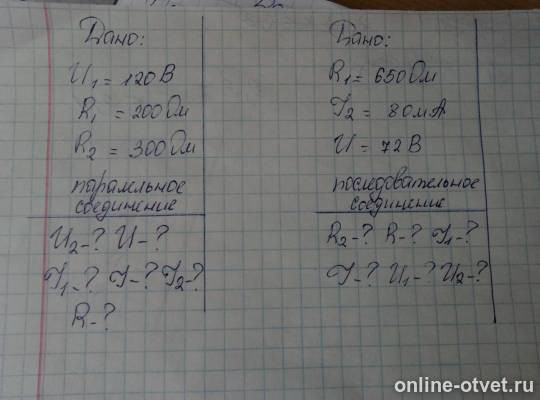 Дано:
U₁ = 120 В
R₁ = 200 Ом
R₂ = 300 Ом
паралельное
соединение
U₂-? U-?
I₁-? I-? I₂-?
R-?
Дано:
R₁ = 650 Ом
I₂ = 80 мА
U = 72 В
последовательное
соединение
R₂-? R-? I₁-?
I-? U₁-? U₂-?
online-otvet.ru